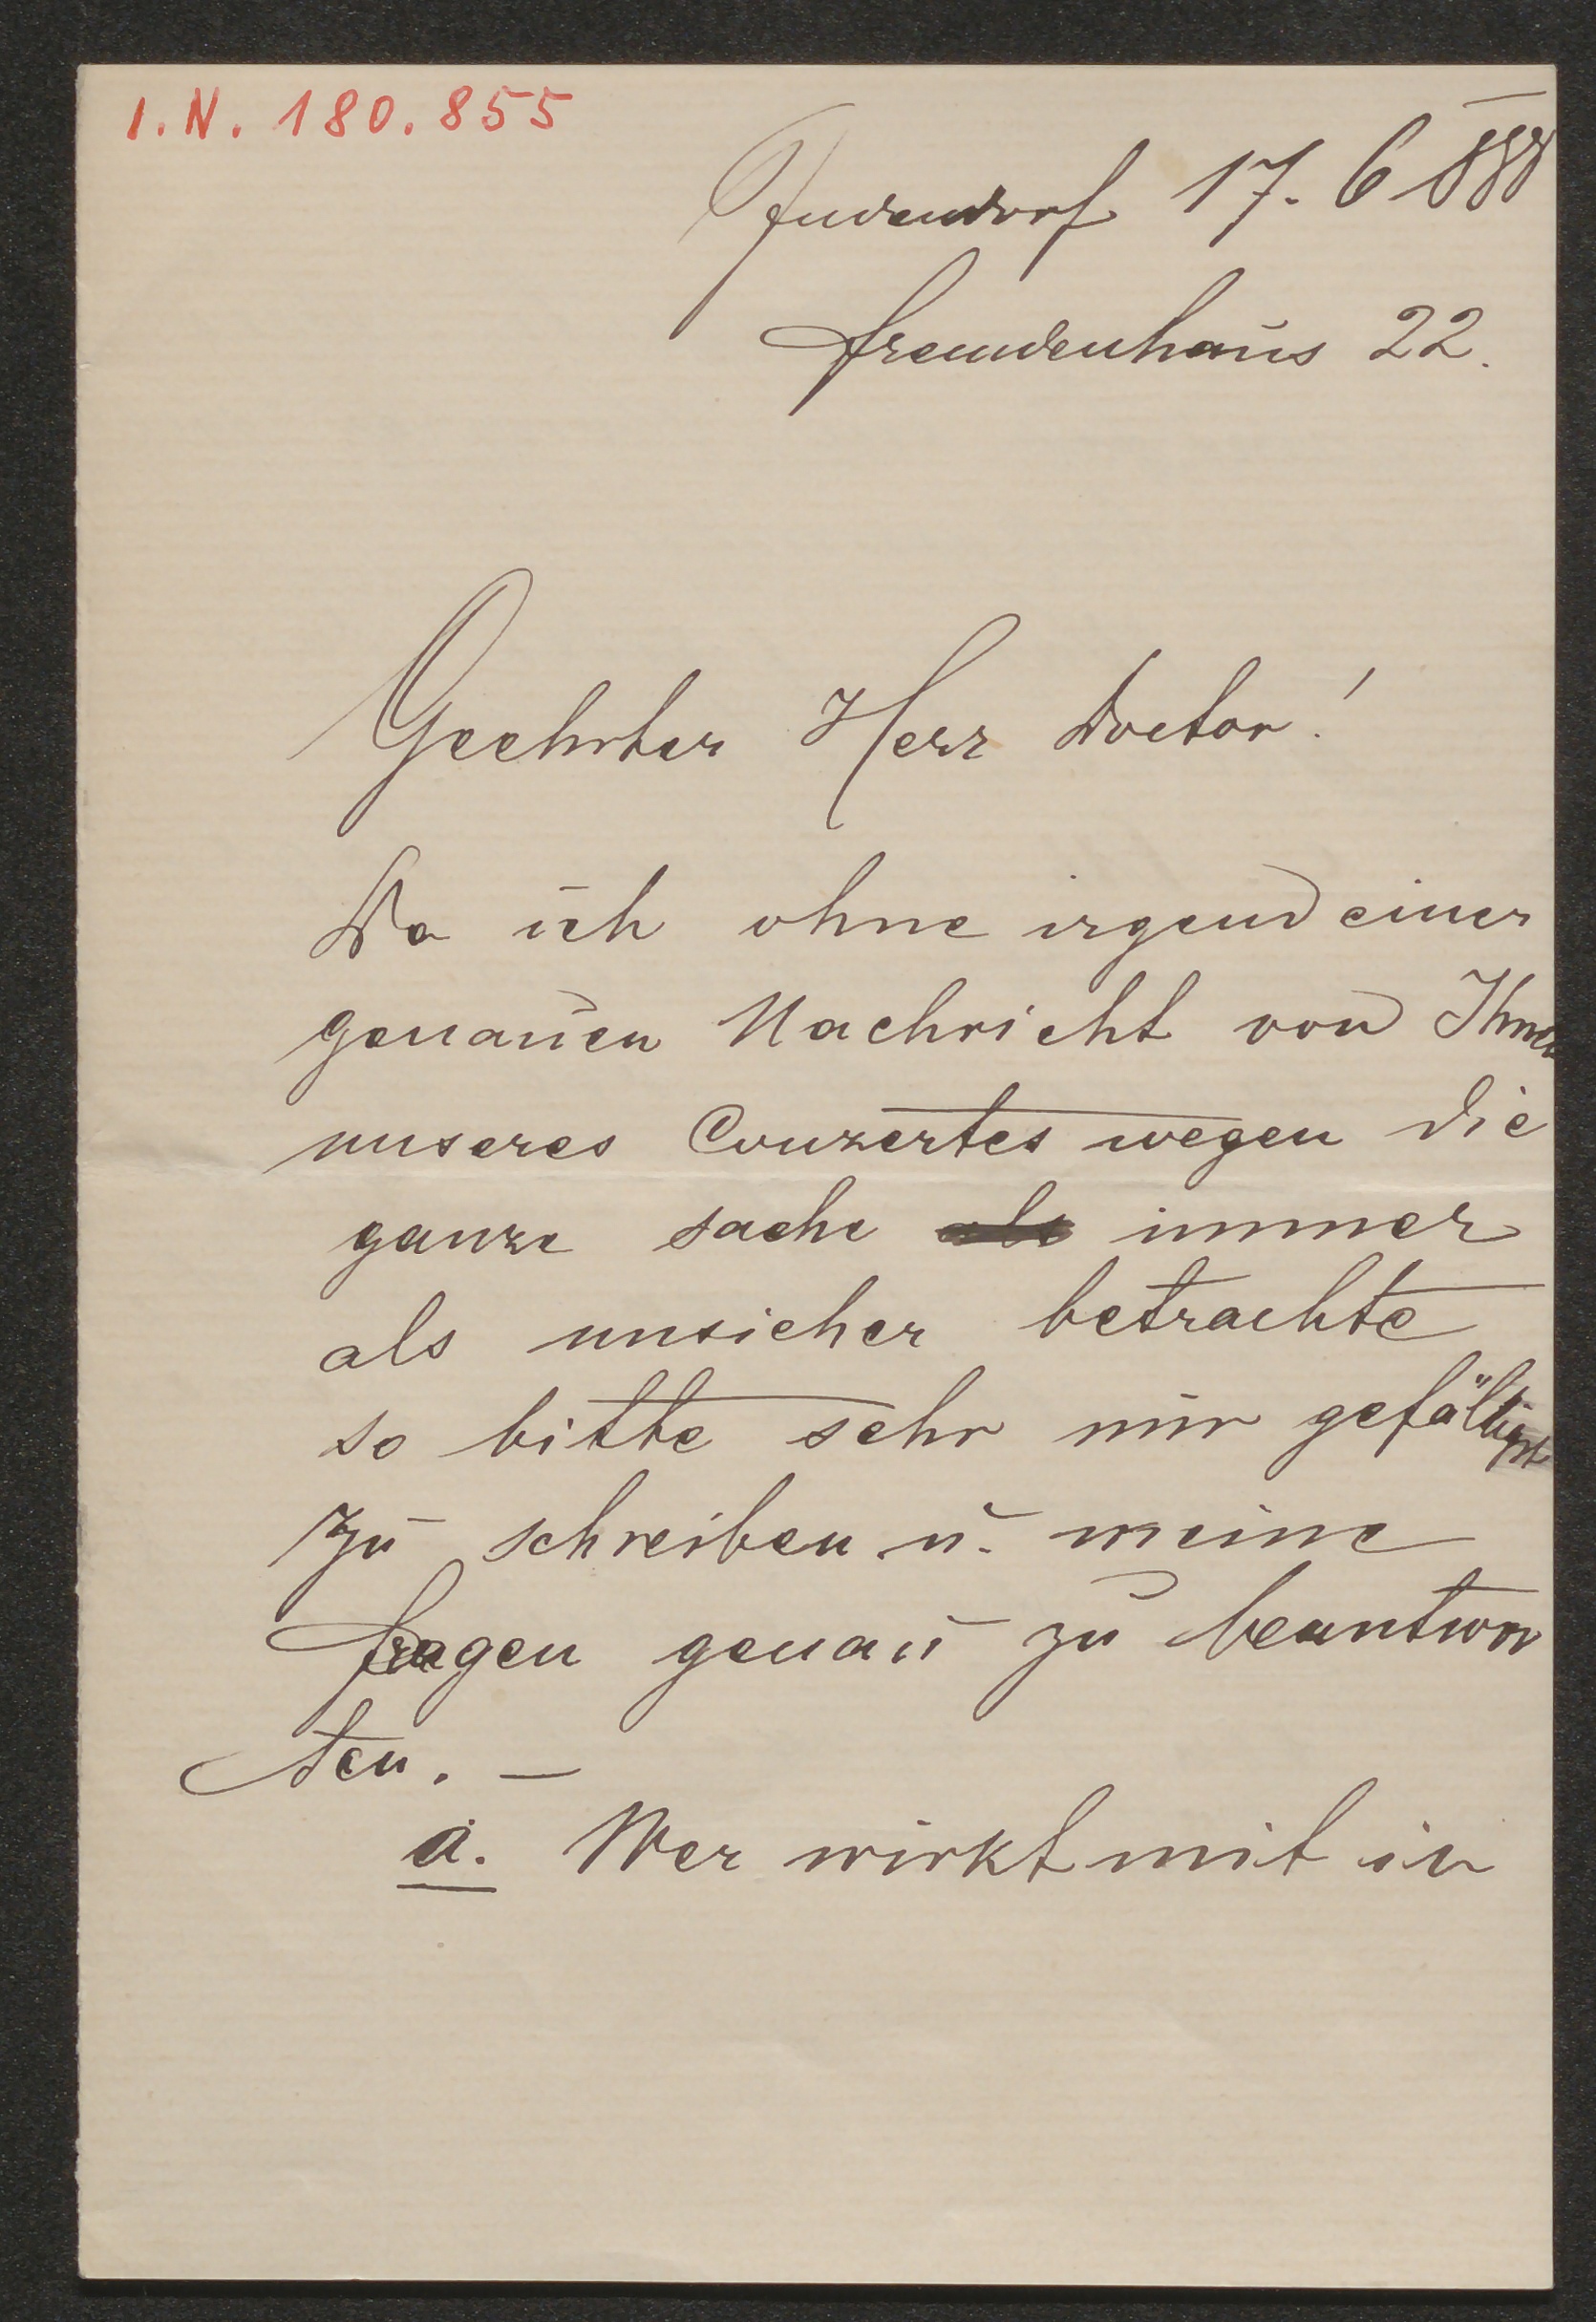 I.N. 180.855
Judendorf 17. 6 888
Fremdenhaus 22.
Geehrter Herr Doctor!
Da ich ohne irgend einer
genauen Nachricht von Ihnen
unseres Conzertes wegen die
ganze sache als immer
als unsicher betrachte
so bitte sehr mir gefälligst
zu schreiben u. meine
fragen genau zu beantwor
ten. —
a. Wer wirkt mit in